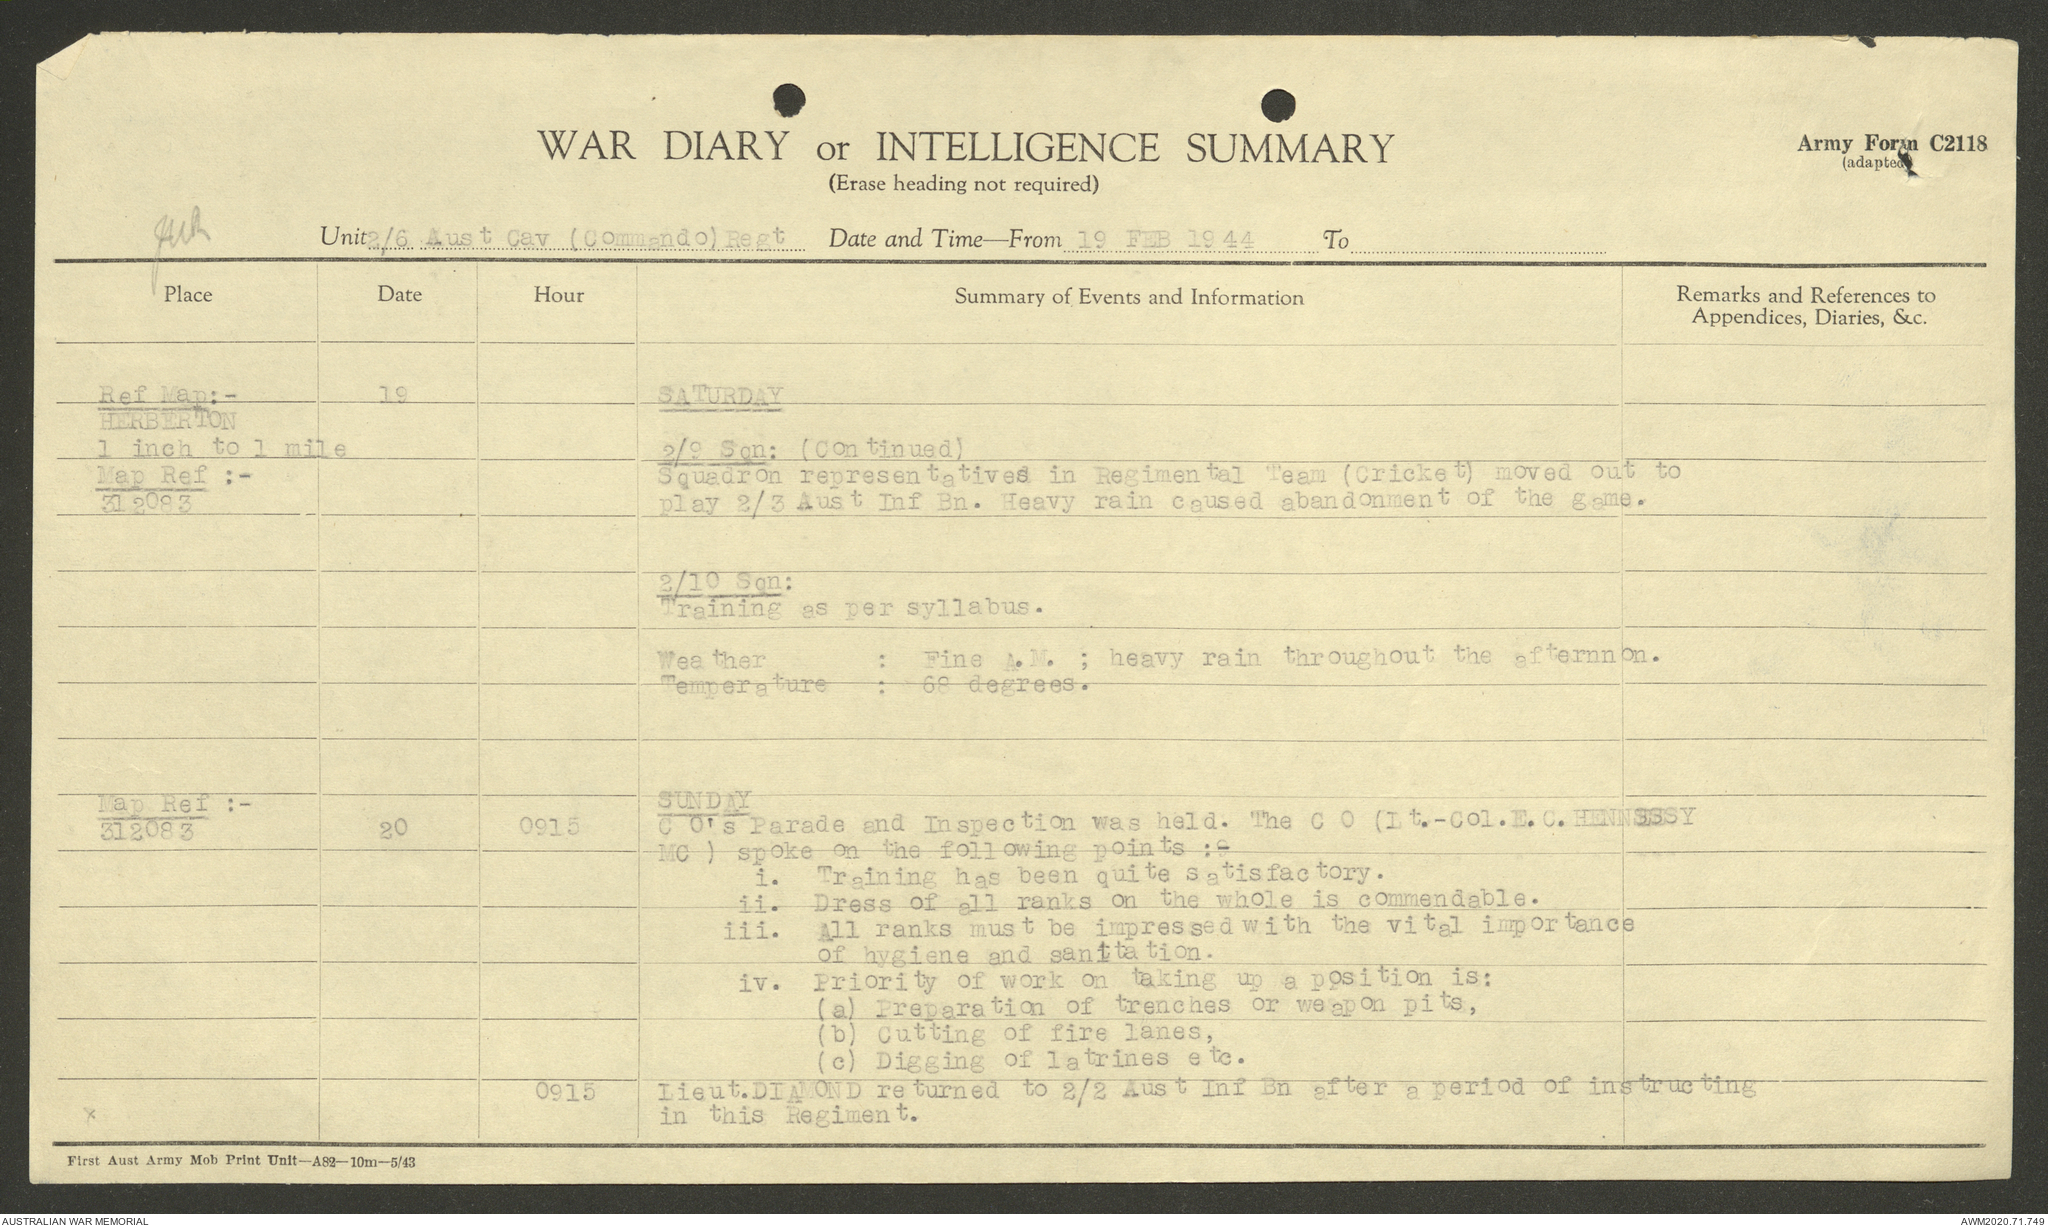 WAR DIARY or INTELLIGENCE SUMMARY
(Erase heading not required)
Army Form C2118
(adapted)
Unit 2/6 Aust Cav (Commando) Regt Date and Time—From 19 FEB 1944 To
Place Date Hour Summary of Events and Information Remarks and References to Appendices, Diaries, &c.
Ref Map:- 19 SATURDAY
HERBERTON
1 inch to 1 mile 2/9 Sqn: (Continued)
Map Ref :- Squadron representatives in Regimental Team (Cricket) moved out to
312083 play 2/3 Aust Inf Bn. Heavy rain caused abandonment of the game.
2/10 Sqn:
Training as per syllabus.
Weather : Fine A.M. ; heavy rain throughout the afternnon.
Temperature : 68 degrees.
Map Ref :- SUNDAY
312083 20 0915 C O's Parade and Inspection was held. The C O (Lt.-Col.E.C.HENNSSSY
MC ) spoke on the following points :-
i. Training has been quite satisfactory.
ii. Dress of all ranks on the whole is commendable.
iii. All ranks must be impressed with the vital importance
of hygiene and sanitation.
iv. Priority of work on taking up a position is:
(a) Preparation of trenches or weapon pits,
(b) Cutting of fire lanes,
(c) Digging of latrines etc.
0915 Lieut.DIAMOND returned to 2/2 Aust Inf Bn after a period of instructing
x in this Regiment.
First Aust Army Mob Print Unit—A82—10m—5/43
AUSTRALIAN WAR MEMORIAL AWM2020.71.749